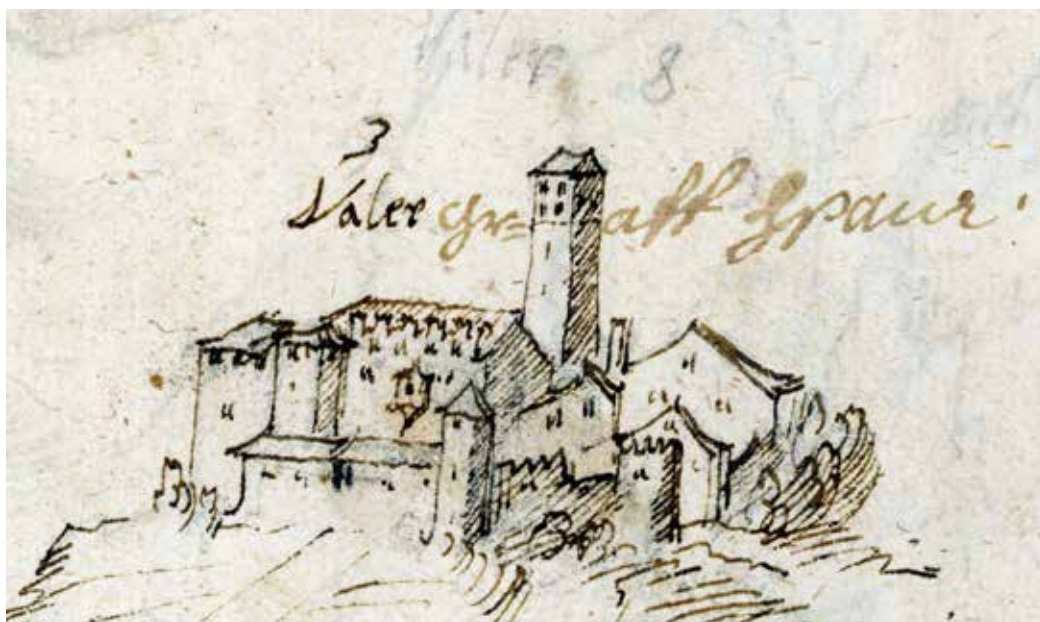 8
3
Valer gr= aff Spaur.